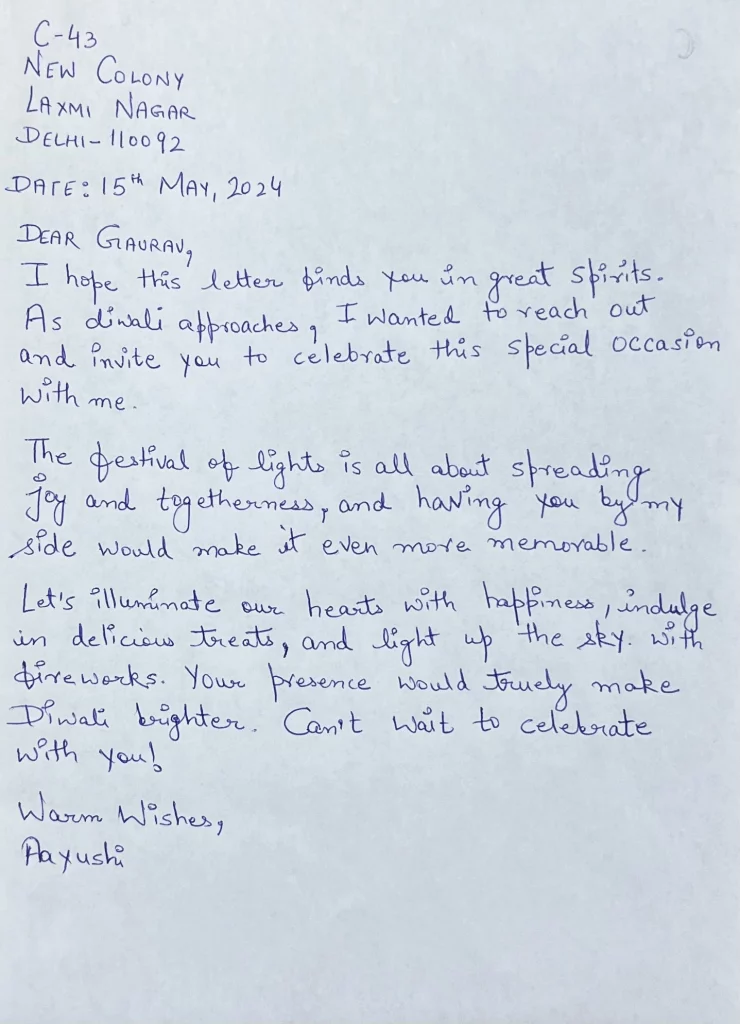 C-43
NEW COLONY
LAXMI NAGAR
DELHI-110092
DATE: 15th MAY, 2024
DEAR GAURAV,
I hope this letter finds you in great spirits.
As diwali approaches, I wanted to reach out
and invite you to celebrate this special occasion
with me.
The festival of lights is all about spreading
joy and togetherness, and having you by my
side would make it even more memorable.
Let's illuminate our hearts with happiness, indulge
in delicious treats, and light up the sky. with
fireworks. Your presence would truely make
Diwali brighter. Can't wait to celebrate
with you!
Warm Wishes,
Aayushi